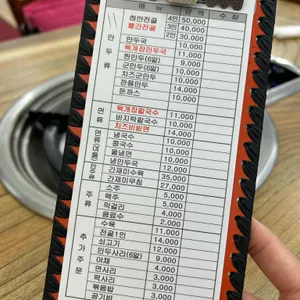 메 뉴 수 량
하얀전골 4인 50,000
빨간전골 3인 40,000
2인 30,000
만두국 10,000
육개장만두국 11,000
찐만두(6알) 9,000
군만두(6알) 10,000
치즈군만두 10,000
깐풀만두 14,000
돈까스 10,000
육개장칼국수 11,000
바지락칼국수 10,000
치즈비빔면 10,000
냉국수 14,000
콩국수 10,000
물냉면 10,000
냉만두국 12,000
간재미수육 35,000
간재미무침 27,000
소주 5,000
맥주 5,000
막걸리 3,000
음료수 2,000
수육 2,000
전골1인 11,000
쇠고기 14,000
만두사리(6알) 12,000
야채 9,000
면사리 4,000
떡사리 3,000
볶음밥 3,000
공기밥
만 두 류
면 류
주 류
추 가 주 문